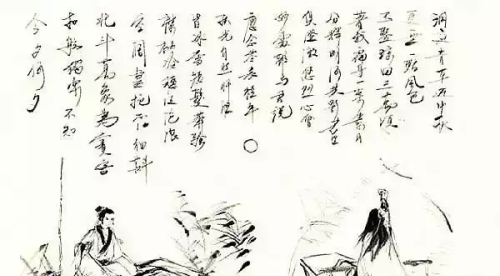 洞庭青草近中秋
更無一點風色
玉鑒瓊田三萬頃
著我扁舟一葉素月
分輝明河共影表里
俱澄澈悠然心會
妙處難与君說
應念嶺表經年
孤光自照肝膽
皆冰雪短髮蕭騷
襟袖冷穩泛滄浪
空闊盡挹西江細斟
北斗萬象為賓客
扣舷獨嘯不知
今夕何夕